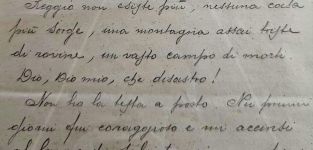 Reggio non esiste più, nessuna casa
più sorge, una montagna assai triste
di rovine, un vasto campo di morte.
Dio, Dio mio, che disastro!
Non ho la testa a posto Nei primi
giorni fui coraggioso e mi accinsi